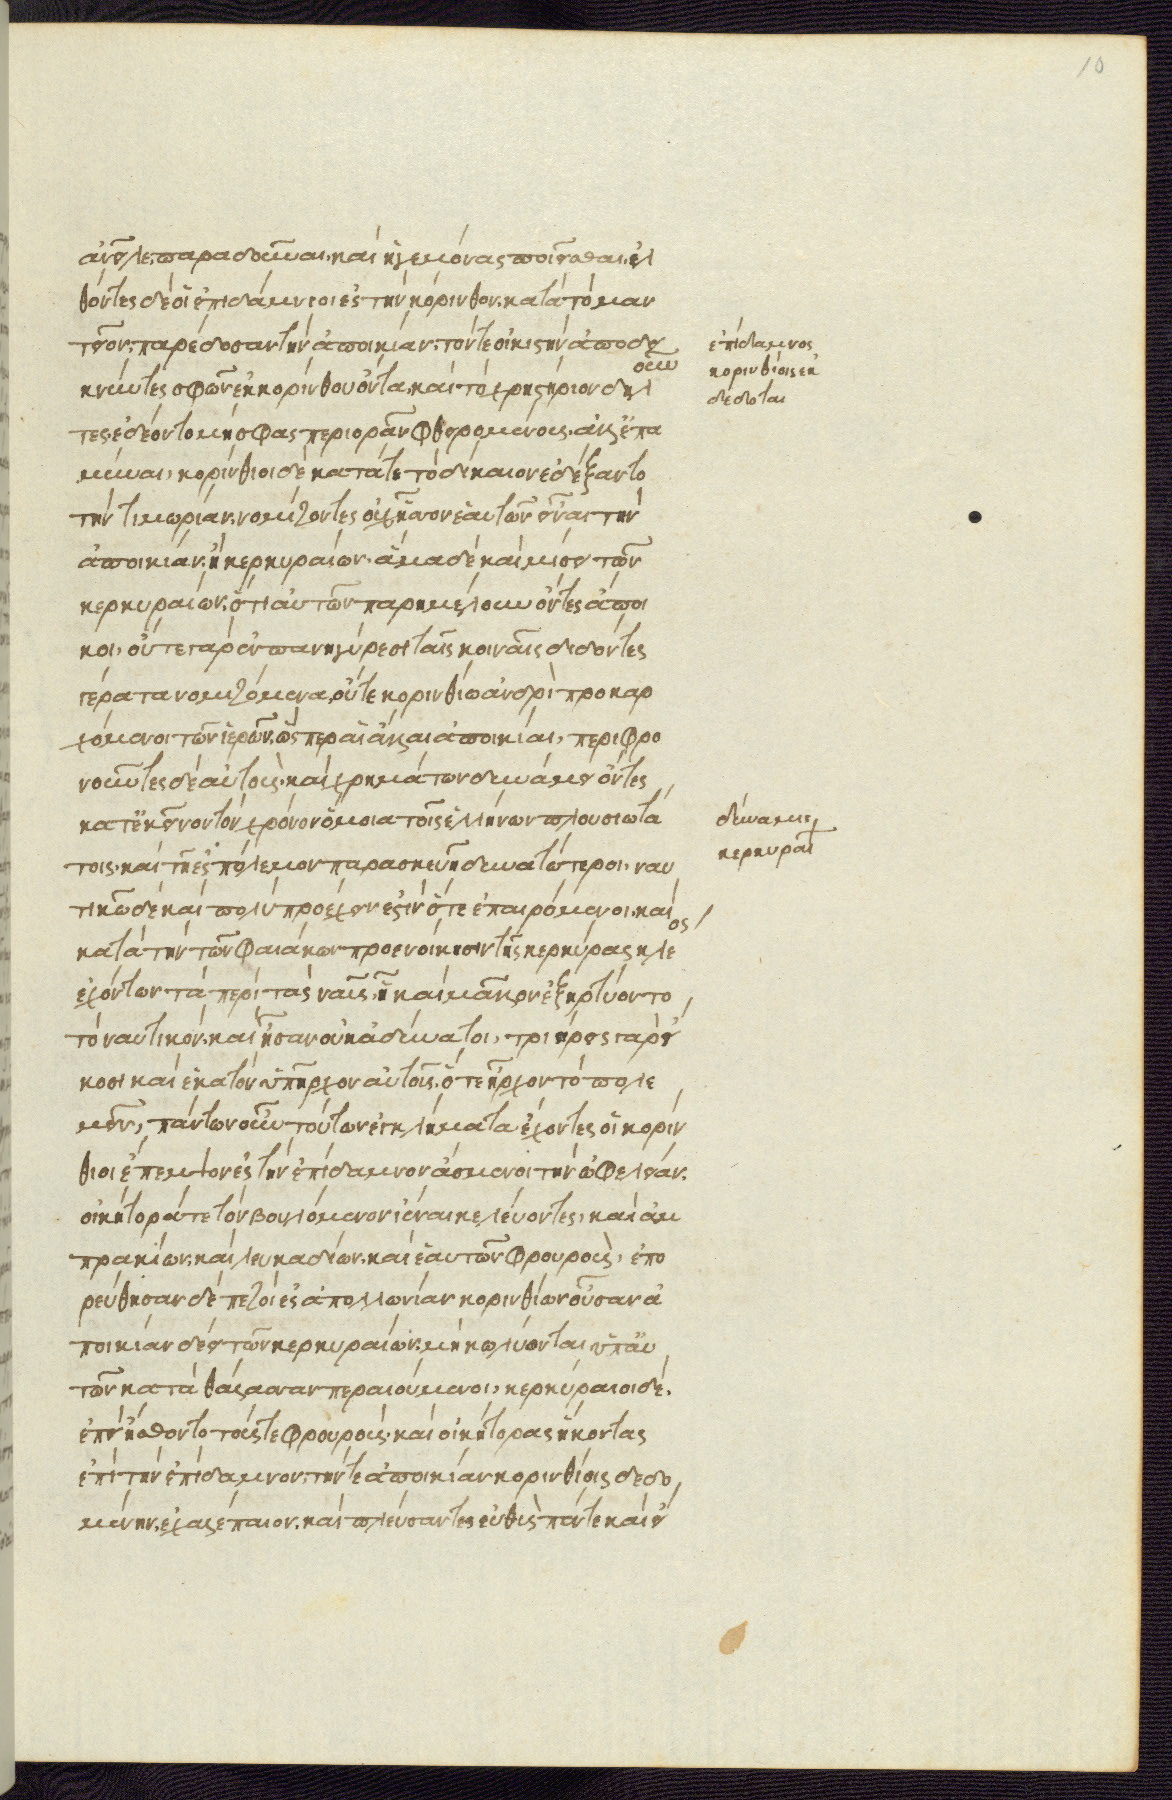 ἀνεῖλε παραδοῦναι. καὶ ἡγεμόνας ποιεῖσθαι. ἐλ
θόντες δὲ οἱ ἐπιδάμνιοι ἐς τὴν κόρινθον. κατὰ τὸ μαν
τεῖον. παρέδοσαν τὴν ἀποικίαν. τόν τε οἰκιστὴν ἀποδει
κνύντες σφῶν ἐκ κορίνθου ὄντα. καὶ τὸ χρηστήριον δηλοῦν
τες. ἐδέοντο μὴ σφᾶς περιορᾶν φθειρομένους. ἀλλ' ἐπα
μῦναι. κορίνθιοι δὲ κατά τε τὸ δίκαιον ἐδέξαντο
τὴν τιμωρίαν. νομίζοντες οὐχ ἧσσον ἑαυτῶν εἶναι τὴν
ἀποικίαν. ἢ κερκυραίων. ἅμα δὲ καὶ μίσει τῶν
κερκυραίων. ὅτι αὐτῶν παρημέλουν ὄντες ἄποι
κοι. οὔτε γὰρ ἐν πανηγύρεσι ταῖς κοιναῖς διδόντες
γέρατα νομιζόμενα. οὔτε κορινθίῳ ἀνδρὶ προκαρ
χόμενοι τῶν ἱερῶν. ὥσπερ αἱ ἄλλαι ἀποικίαι. περιφρο
νοῦντες δὲ αὐτοὺς. καὶ χρημάτων δυνάμει ὄντες
κατ' ἐκεῖνον τὸν χρόνον ὅμοια τοῖς ἑλλήνων πλουσιωτά
τοις. καὶ τῇ ἐς πόλεμον παρασκευῇ δυνατώτεροι. ναυ
τικῷ δὲ καὶ πολὺ προέχειν ἔστιν ὅτε ἐπαιρόμενοι. καὶ
κατὰ τὴν τῶν φαιάκων προενοίκησιν τῆς κερκύρας κλέος
ἐχόντων τὰ περὶ τὰς ναῦς. ᾗ καὶ μᾶλλον ἐξηρτύοντο
τὸ ναυτικόν. καὶ ἦσαν οὐκ ἀδύνατοι. τριήρεις γὰρ εἴ
κοσι καὶ ἑκατὸν ὑπῆρχον αὐτοῖς. ὅτε ἤρχοντο πολε
μεῖν. πάντων οὖν τούτων ἐγκλήματα ἔχοντες οἱ κορίν
θιοι ἔπεμπον ἐς τὴν ἐπίδαμνον ἄσμενοι τὴν ὠφελείαν.
οἰκήτορά τε τὸν βουλόμενον ἰέναι κελεύοντες. καὶ ἀμ
πρακιων. καὶ λευκαδίων. καὶ ἑαυτῶν φρουροὺς. ἐπο
ρεύθησαν δὲ πεζοὶ ἐς ἀπολλωνίαν κορινθίων οὖσαν ἀ
ποικίαν δέει τῶν κερκυραίων. μὴ κωλύονται ὑπ' αὐ
τῶν κατὰ θάλασσαν περαιούμενοι. κερκύραιοι δέ.
ἐπεὶ ἤσθοντο τούς τε φρουροὺς. καὶ οἰκήτορας ἥκοντας
ἐπὶ τὴν ἐπίδαμνον. τήν τε ἀποικίαν κορινθίοις δεδο
μένην. ἐχαλέπαιον. καὶ πλεύσαντες εὐθὺς πέντε καὶ εἴ
ἐπίδαμνος
κορινθίοις ἐκ
δέδοται
δύναμις
κερκυραί
10